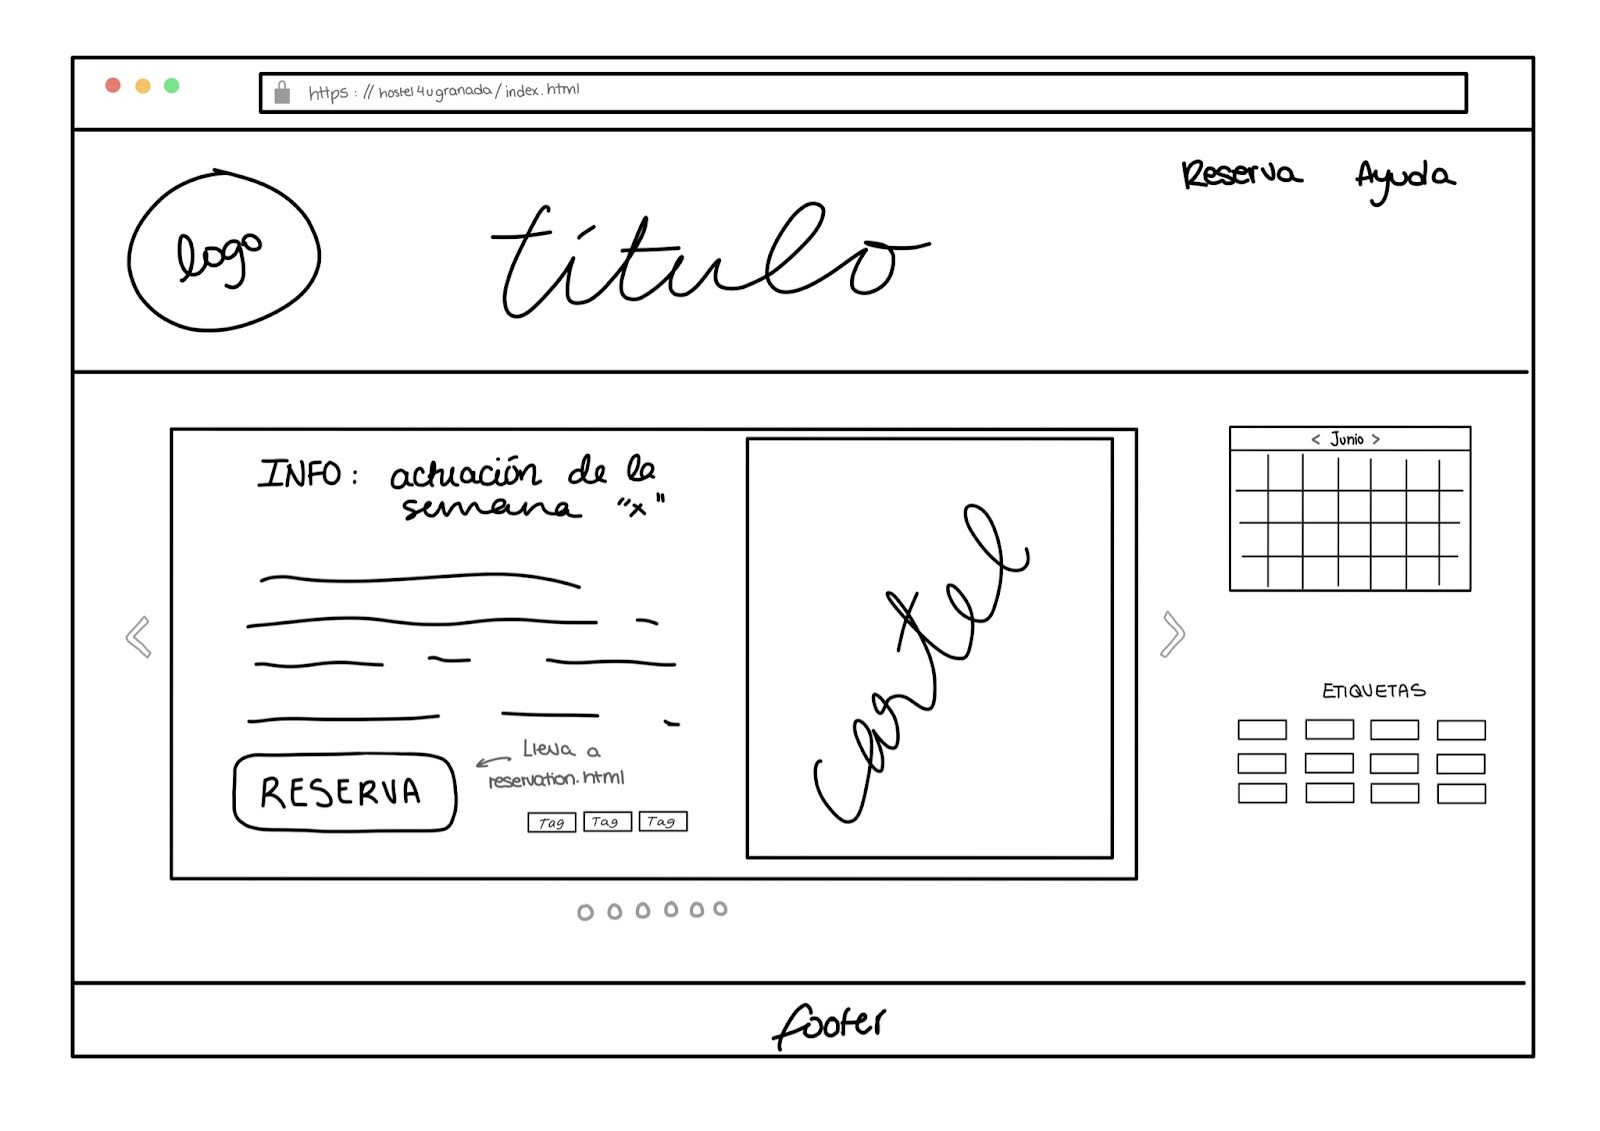 https://hostel4ugranada/index.html
Reserva Ayuda
logo
título
INFO: actuación de la
semana "x"
RESERVA
Lleva a
reservation.html
Tag Tag Tag
cartel
< Junio >
ETIQUETAS
footer